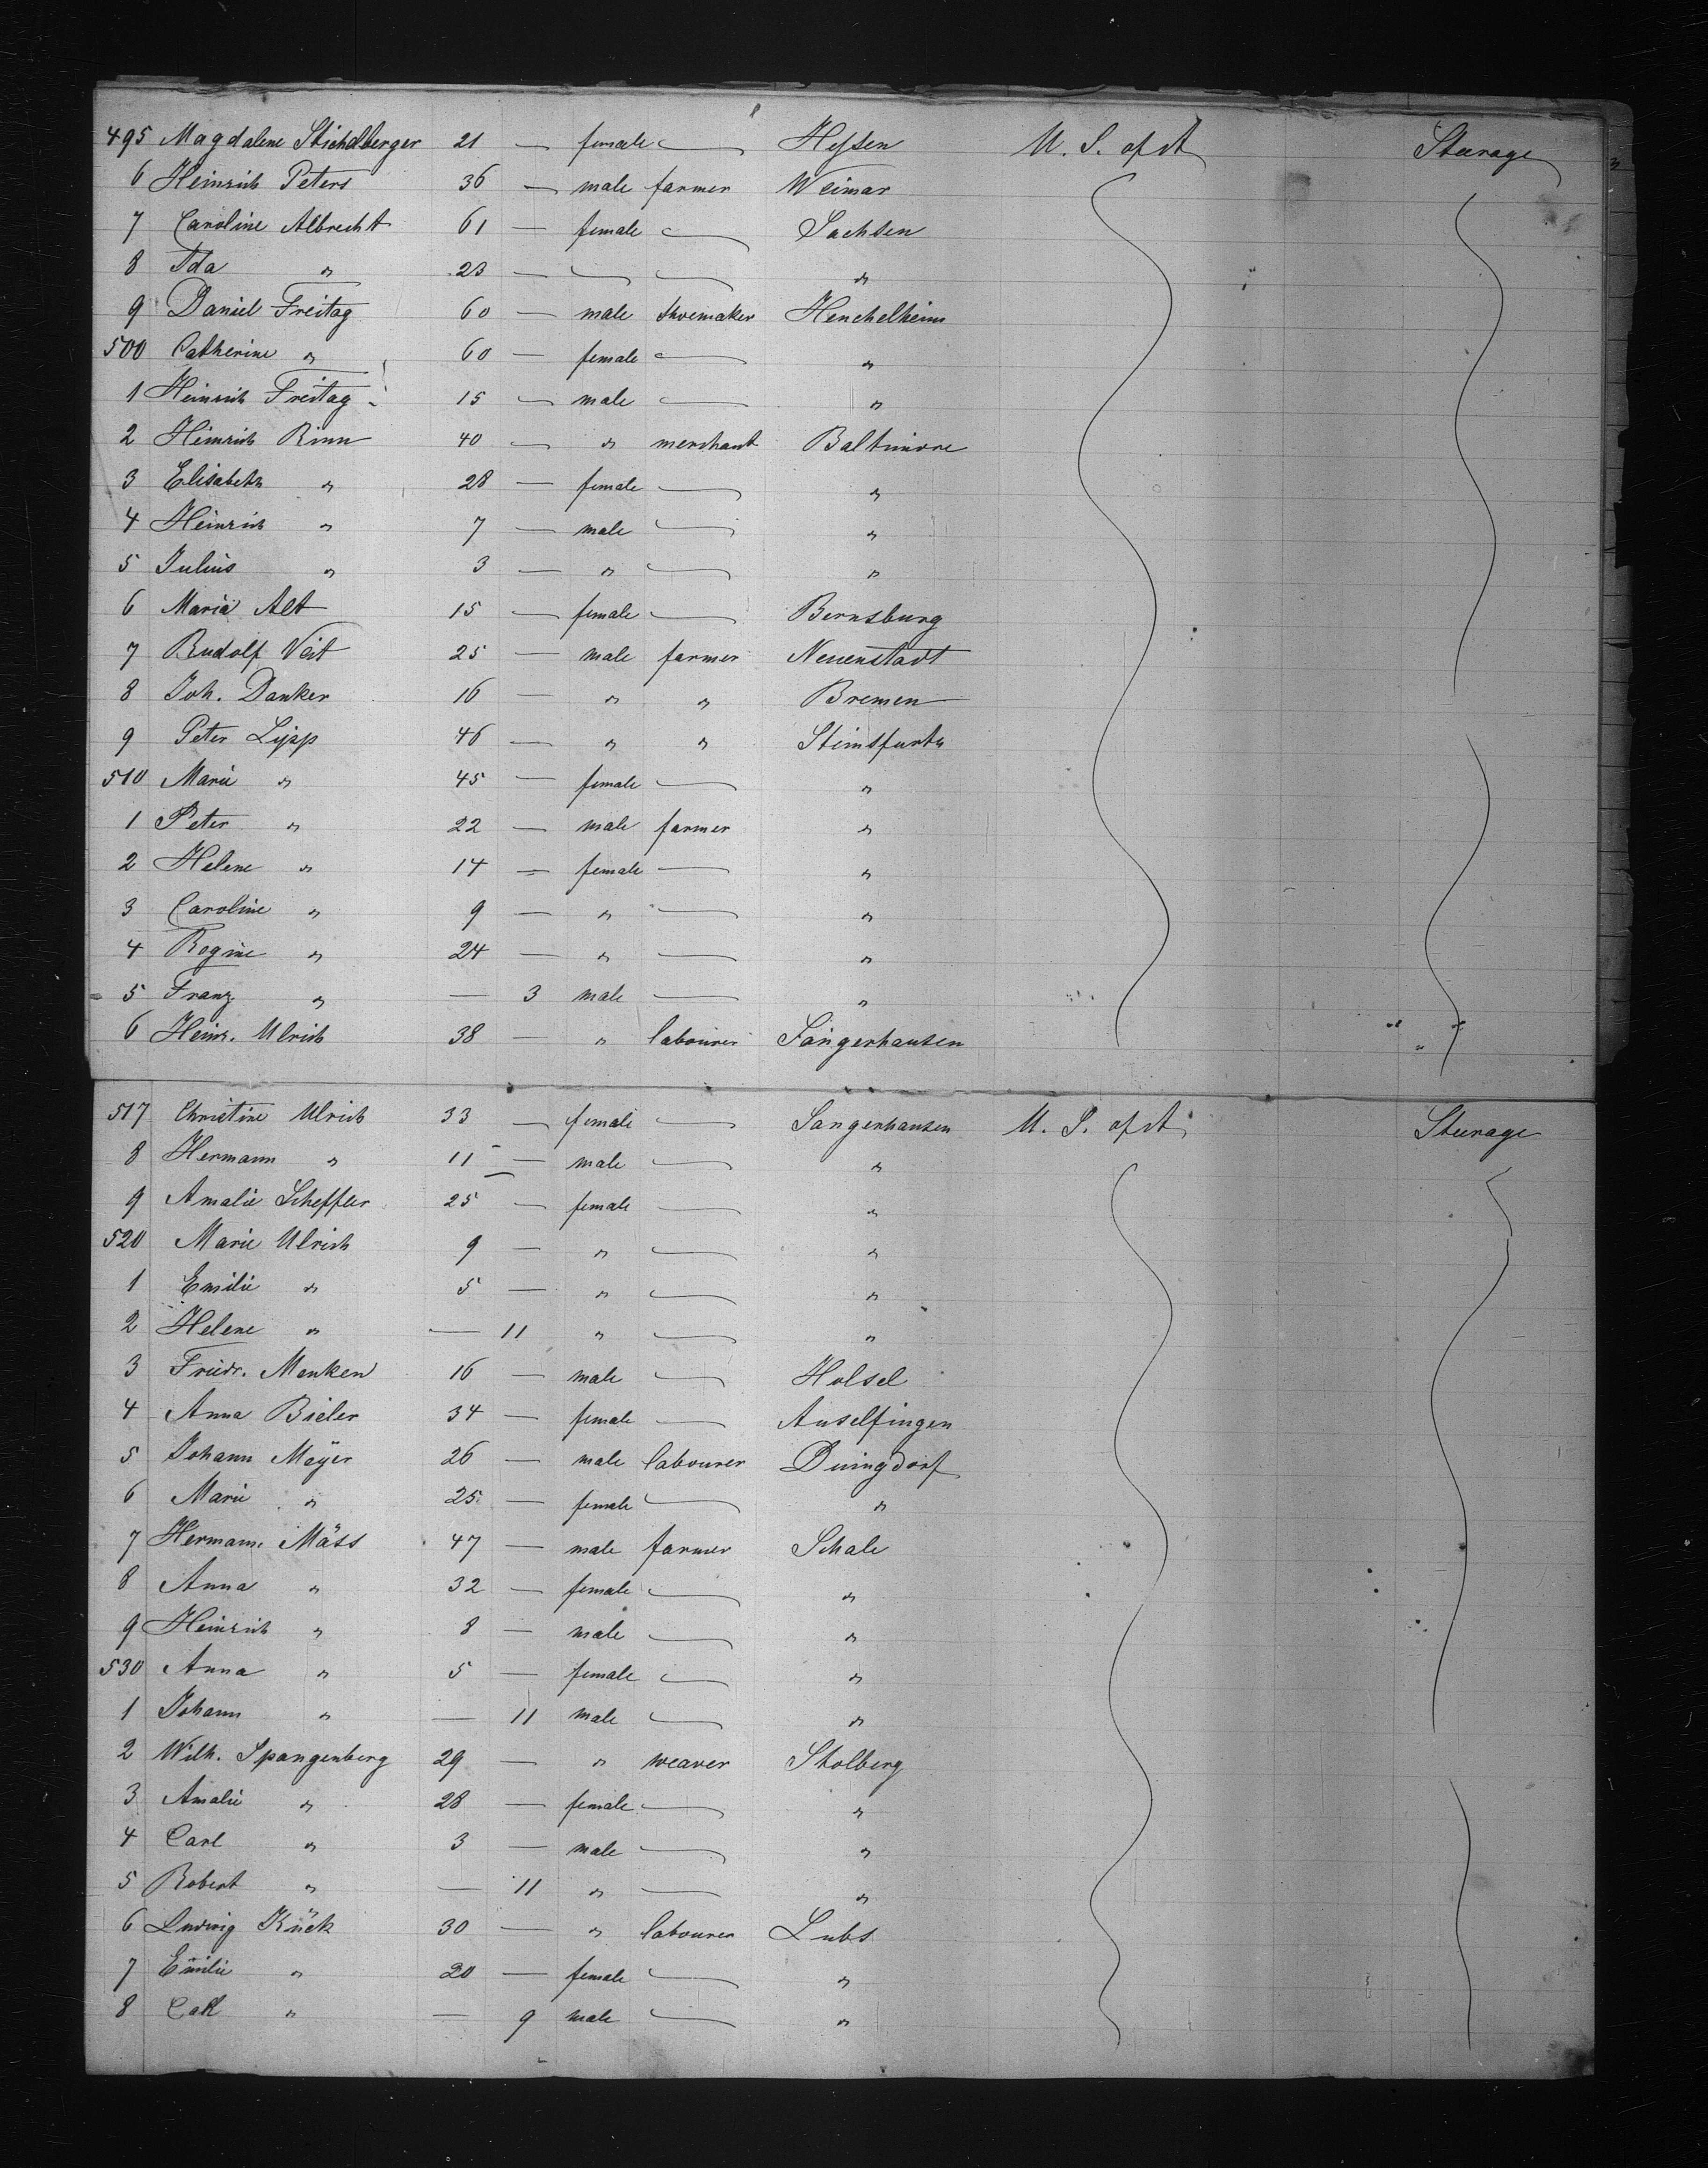 495 Magdalene Stichelberger 21 — female — Hessen U. S. of A Steerage
6 Heinrich Peters 36 — male farmer Weimar
7 Caroline Albrecht 61 — female — Sachsen
8 Ida " 23 — — — "
9 Daniel Freitag 60 — male Shoemaker Henchelheim
500 Catherine " 60 — female — "
1 Heinrich Freitag 15 — male — "
2 Heinrich Rinn 40 — " merchant Baltimore
3 Elisabeth " 28 — female — "
4 Heinrich " 7 — male — "
5 Julius " 3 — " — "
6 Maria Alt 15 — female — Bernsburg
7 Rudolf Veit 25 — male farmer Neuenstadt
8 Joh. Danker 16 — " " Bremen
9 Peter Lipp 46 — " " Steinsfurth
510 Marie " 45 — female — "
1 Peter " 22 — male farmer "
2 Helene " 14 — female — "
3 Caroline " 9 — " — "
4 Regine " 24 — " — "
5 Franz " — 3 male — "
6 Heinr. Ulrich 38 — " labourer Sangerhausen
517 Christine Ulrich 33 — female — Sangerhausen U. S. of A. Steerage
8 Hermann " 11 — male — "
9 Amalie Scheffler 25 — female — "
520 Marie Ulrich 9 — " — "
1 Emilie " 5 — " — "
2 Helene " — 11 " — "
3 Friedr. Menken 16 — male — Holsel
4 Anna Bieler 34 — female — Anselfingen
5 Johann Meÿer 26 — male labourer Duingdorf
6 Marie " 25 — female — "
7 Hermann Mäss 47 — male farmer Schale
8 Anna " 32 — female — "
9 Heinrich " 8 — male — "
530 Anna " 5 — female — "
1 Johann " — 11 male — "
2 Wilh. Spangenberg 29 — " weaver Stolberg
3 Amalie " 28 — female — "
4 Carl " 3 — male — "
5 Robert " — 11 " — "
6 Ludwig Kück 30 — " labourer Lubs
7 Emilie " 20 — female — "
8 Carl " — 9 male — "